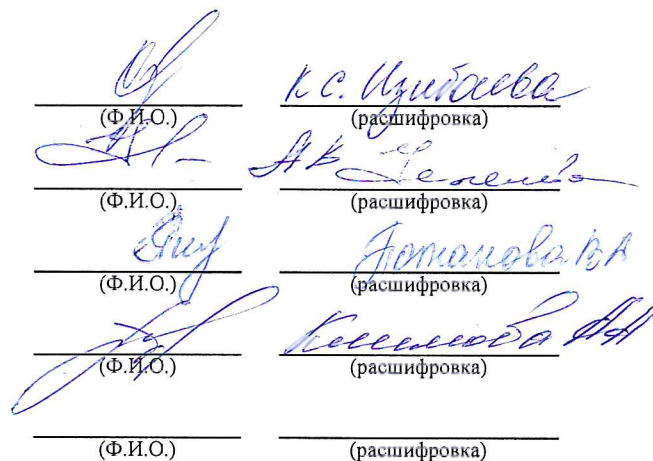 К.С. Изибаева
(Ф.И.О.) (расшифровка)
А В
(Ф.И.О.) (расшифровка)
Потапова В.А
(Ф.И.О.) (расшифровка)
АА
(Ф.И.О.) (расшифровка)
(Ф.И.О.) (расшифровка)